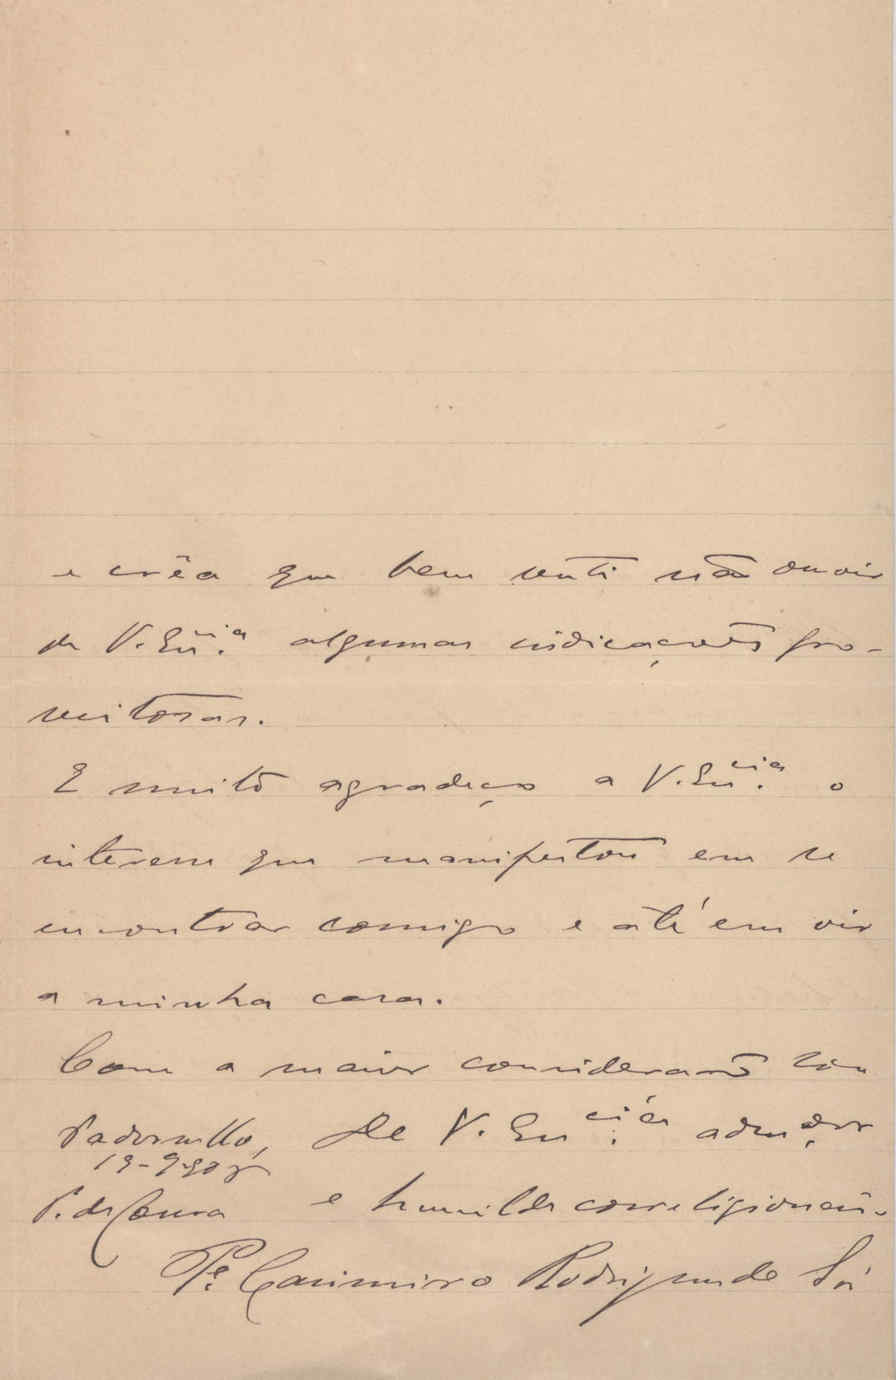 e crêa que bem senti não ouvir
de V. Ex.cia algumas indicações pro-
veitosas.
E muito agradeço a V. Ex.cia o
interesse que manifestou em se
encontrar comigo e até em vir
a minha casa.
Com a maior consideração sou
Padornello, De V. Ex.cia adm.dor
P. de Coura e humilde correligionario
Pe. Casimiro Rodrigues de Sá